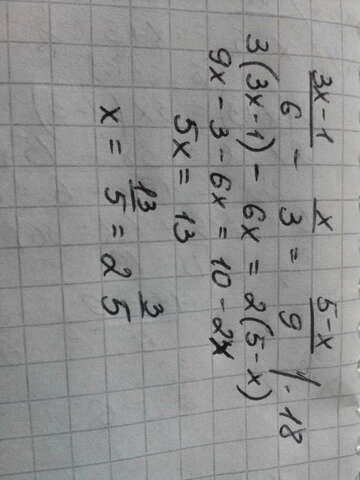 (3x-1)/6 - x/3 = (5-x)/9 /·18
3(3x-1) - 6x = 2(5-x)
9x - 3 - 6x = 10 - 2x
5x = 13
x = 13/5 = 2 3/5